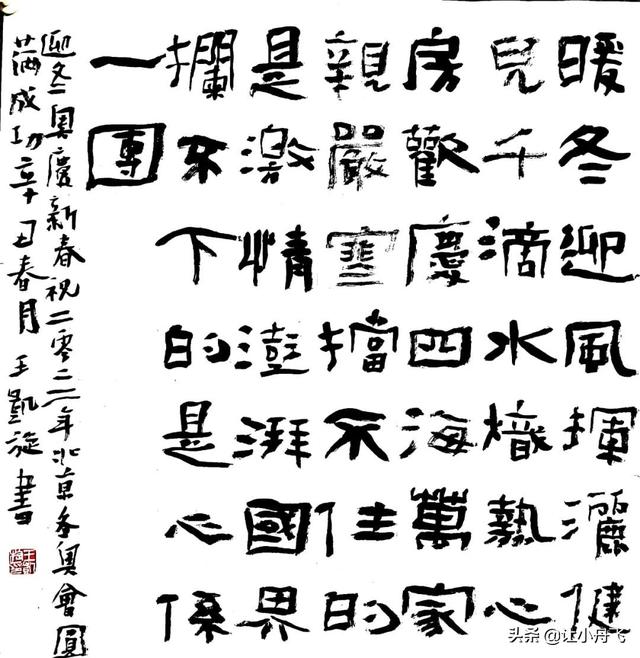 暖冬迎風揮灑健
兒千滴水熾熱心
房歡慶四海萬家
親嚴寒擋不住的
是激情澎湃國界
攔不下的是心係
一團
迎冬奧慶新春祝二零二二年北京冬奧會圓
滿成功辛丑春月王凱旋書
头条 @让小丹飞